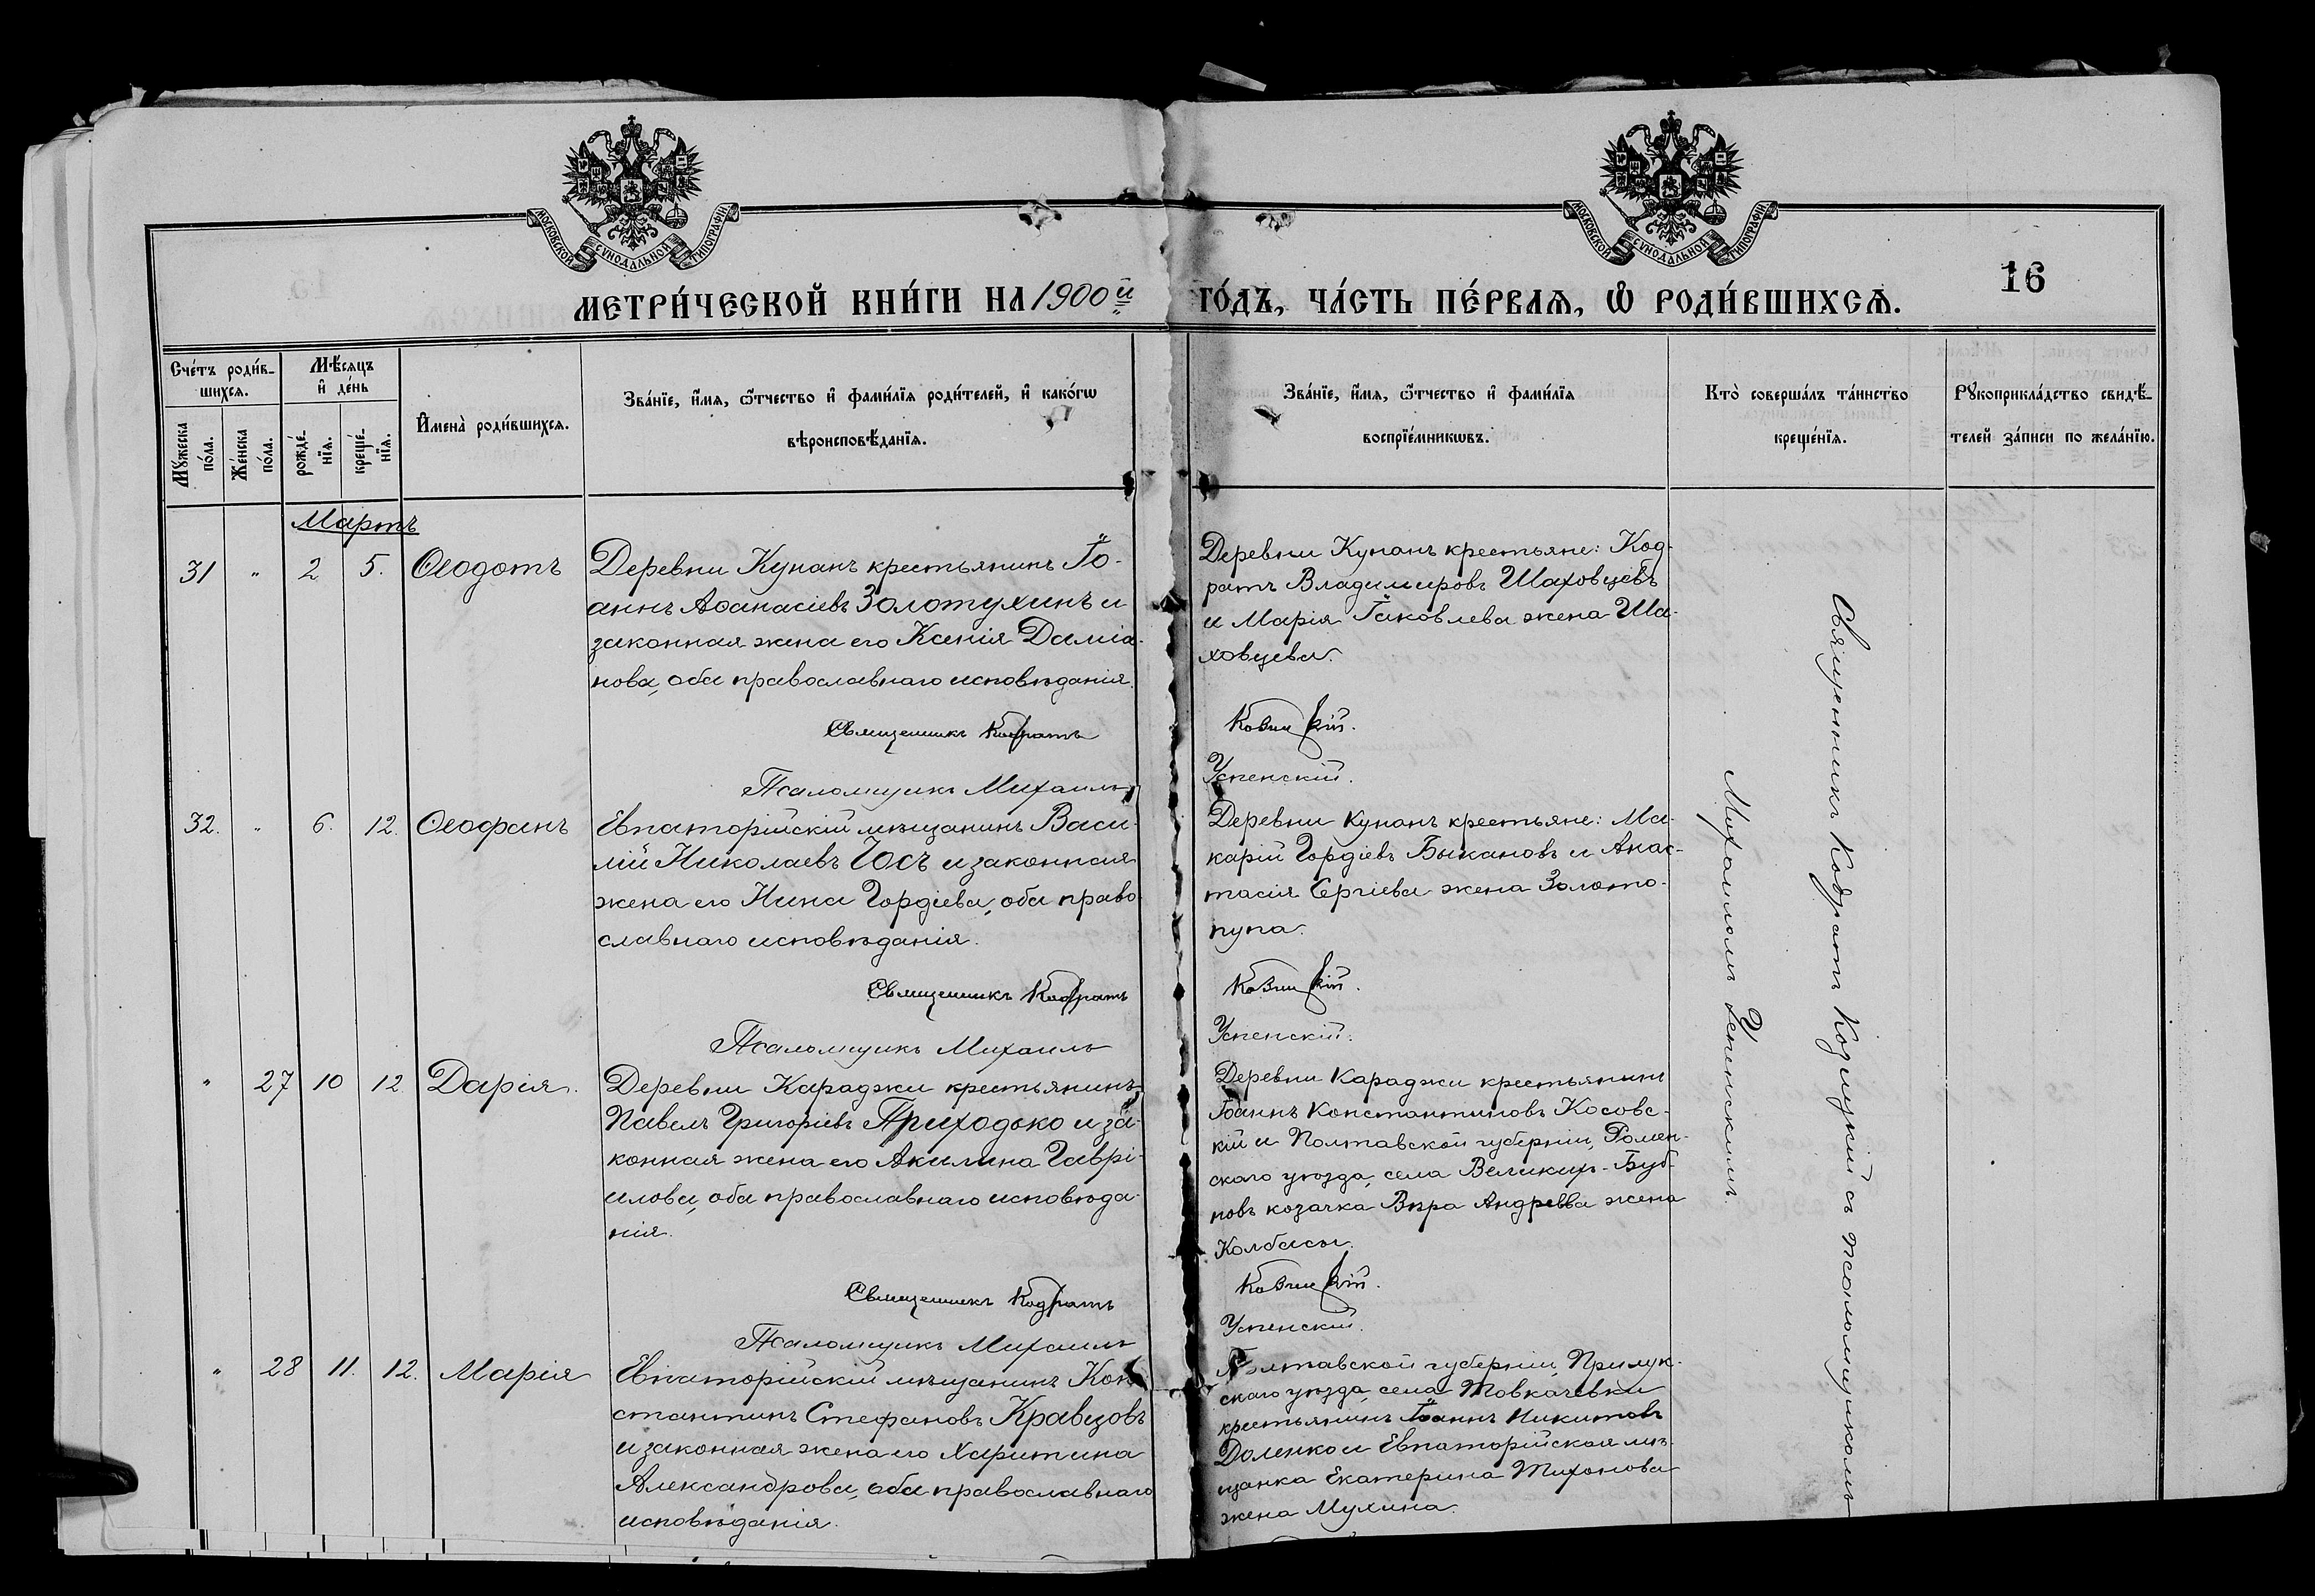 МОСКОВСКОЙ СУНОДАЛЬНОЙ ТИПОГРАФІИ
МОСКОВСКОЙ СУНОДАЛЬНОЙ ТИПОГРАФІИ
МЕТРИ́ЧЕСКОЙ КНИ́ГИ НА 1900й ГО́ДЪ, ЧА́СТЬ ПЕ́РВАѦ, Ѡ РОДИ́ВШИХСѦ.
16
Сче́тъ роди́в-
шихсѧ.
Мꙋ́жеска
по́ла.
Же́нска
по́ла.
Мѣ́сѧцъ
и҆ де́нь
рожде́-
нїѧ.
креще́-
нїѧ.
И҆мена̀ роди́вшихсѧ.
Зва́нїе, и҆́мѧ, ѻ҆́тчество и҆ фами́лїѧ роди́телей, и҆ како́гѡ
вѣроисповѣ́данїѧ.
Зва́нїе, и҆́мѧ, ѻ҆́тчество и҆ фами́лїѧ
воспрїе́мникѡвъ.
Кто̀ соверша́лъ та́инство
креще́нїѧ.
Рꙋкоприкла́дство свидѣ́-
телей за́писи по жела́нїю.
Мартъ
31 " 2 5. Ѳеодотъ
Деревни Кунанъ крестьянинъ Іо-
аннъ Аѳанасіевъ Золотухинъ и
законная жена его Ксенія Даміа-
нова, оба православнаго исповѣданія.
Священникъ Кодратъ
Псаломщикъ Михаилъ
Деревни Кунанъ крестьяне: Код-
ратъ Владимировъ Шаховцевъ
и Марія Іаковлева жена Ша-
ховцева.
Козицкій.
Успенскій.
32. " 6. 12. Ѳеофанъ
Евпаторійскій мѣщанинъ Васи-
лій Николаевъ Гось и законная
жена его Нина Гордіева, оба право-
славнаго исповѣданія.
Священникъ Кодратъ
Псаломщикъ Михаилъ
Деревни Кунанъ крестьяне: Ма-
карій Гордіевъ Быкановъ и Анас-
тасія Сергіева жена Золото-
пупа.
Козицкій.
Успенскій.
" 27 10 12 Дарія.
Деревни Караджи крестьянинъ
Павелъ Григоріевъ Приходько и за-
конная жена его Акилина Гаврі-
илова, оба православнаго исповѣда-
нія.
Священникъ Кодратъ
Псаломщикъ Михаилъ
Деревни Караджи крестьянинъ
Іоаннъ Константиновъ Косовс-
кій и Полтавской губерніи, Ромен-
скаго уѣзда, села Великих-Буб-
новъ козачка Вѣра Андреева жена
Колбасы.
Козицкій.
Успенскій.
" 28 11. 12. Марія
Евпаторійскій мѣщанинъ Кон-
стантинъ Стефановъ Кравцовъ
и законная жена его Харитина
Александрова, оба православнаго
исповѣданія.
Полтавской губерніи, Прилук-
скаго уѣзда, села Товкачевки
крестьянинъ Іоаннъ Никитовъ
Доленко и Евпаторійская мѣ-
щанка Екатерина Тихонова
жена Мухина.
Священникъ Кодратъ Козицкій съ псаломщикомъ
Михаиломъ Успенскимъ.